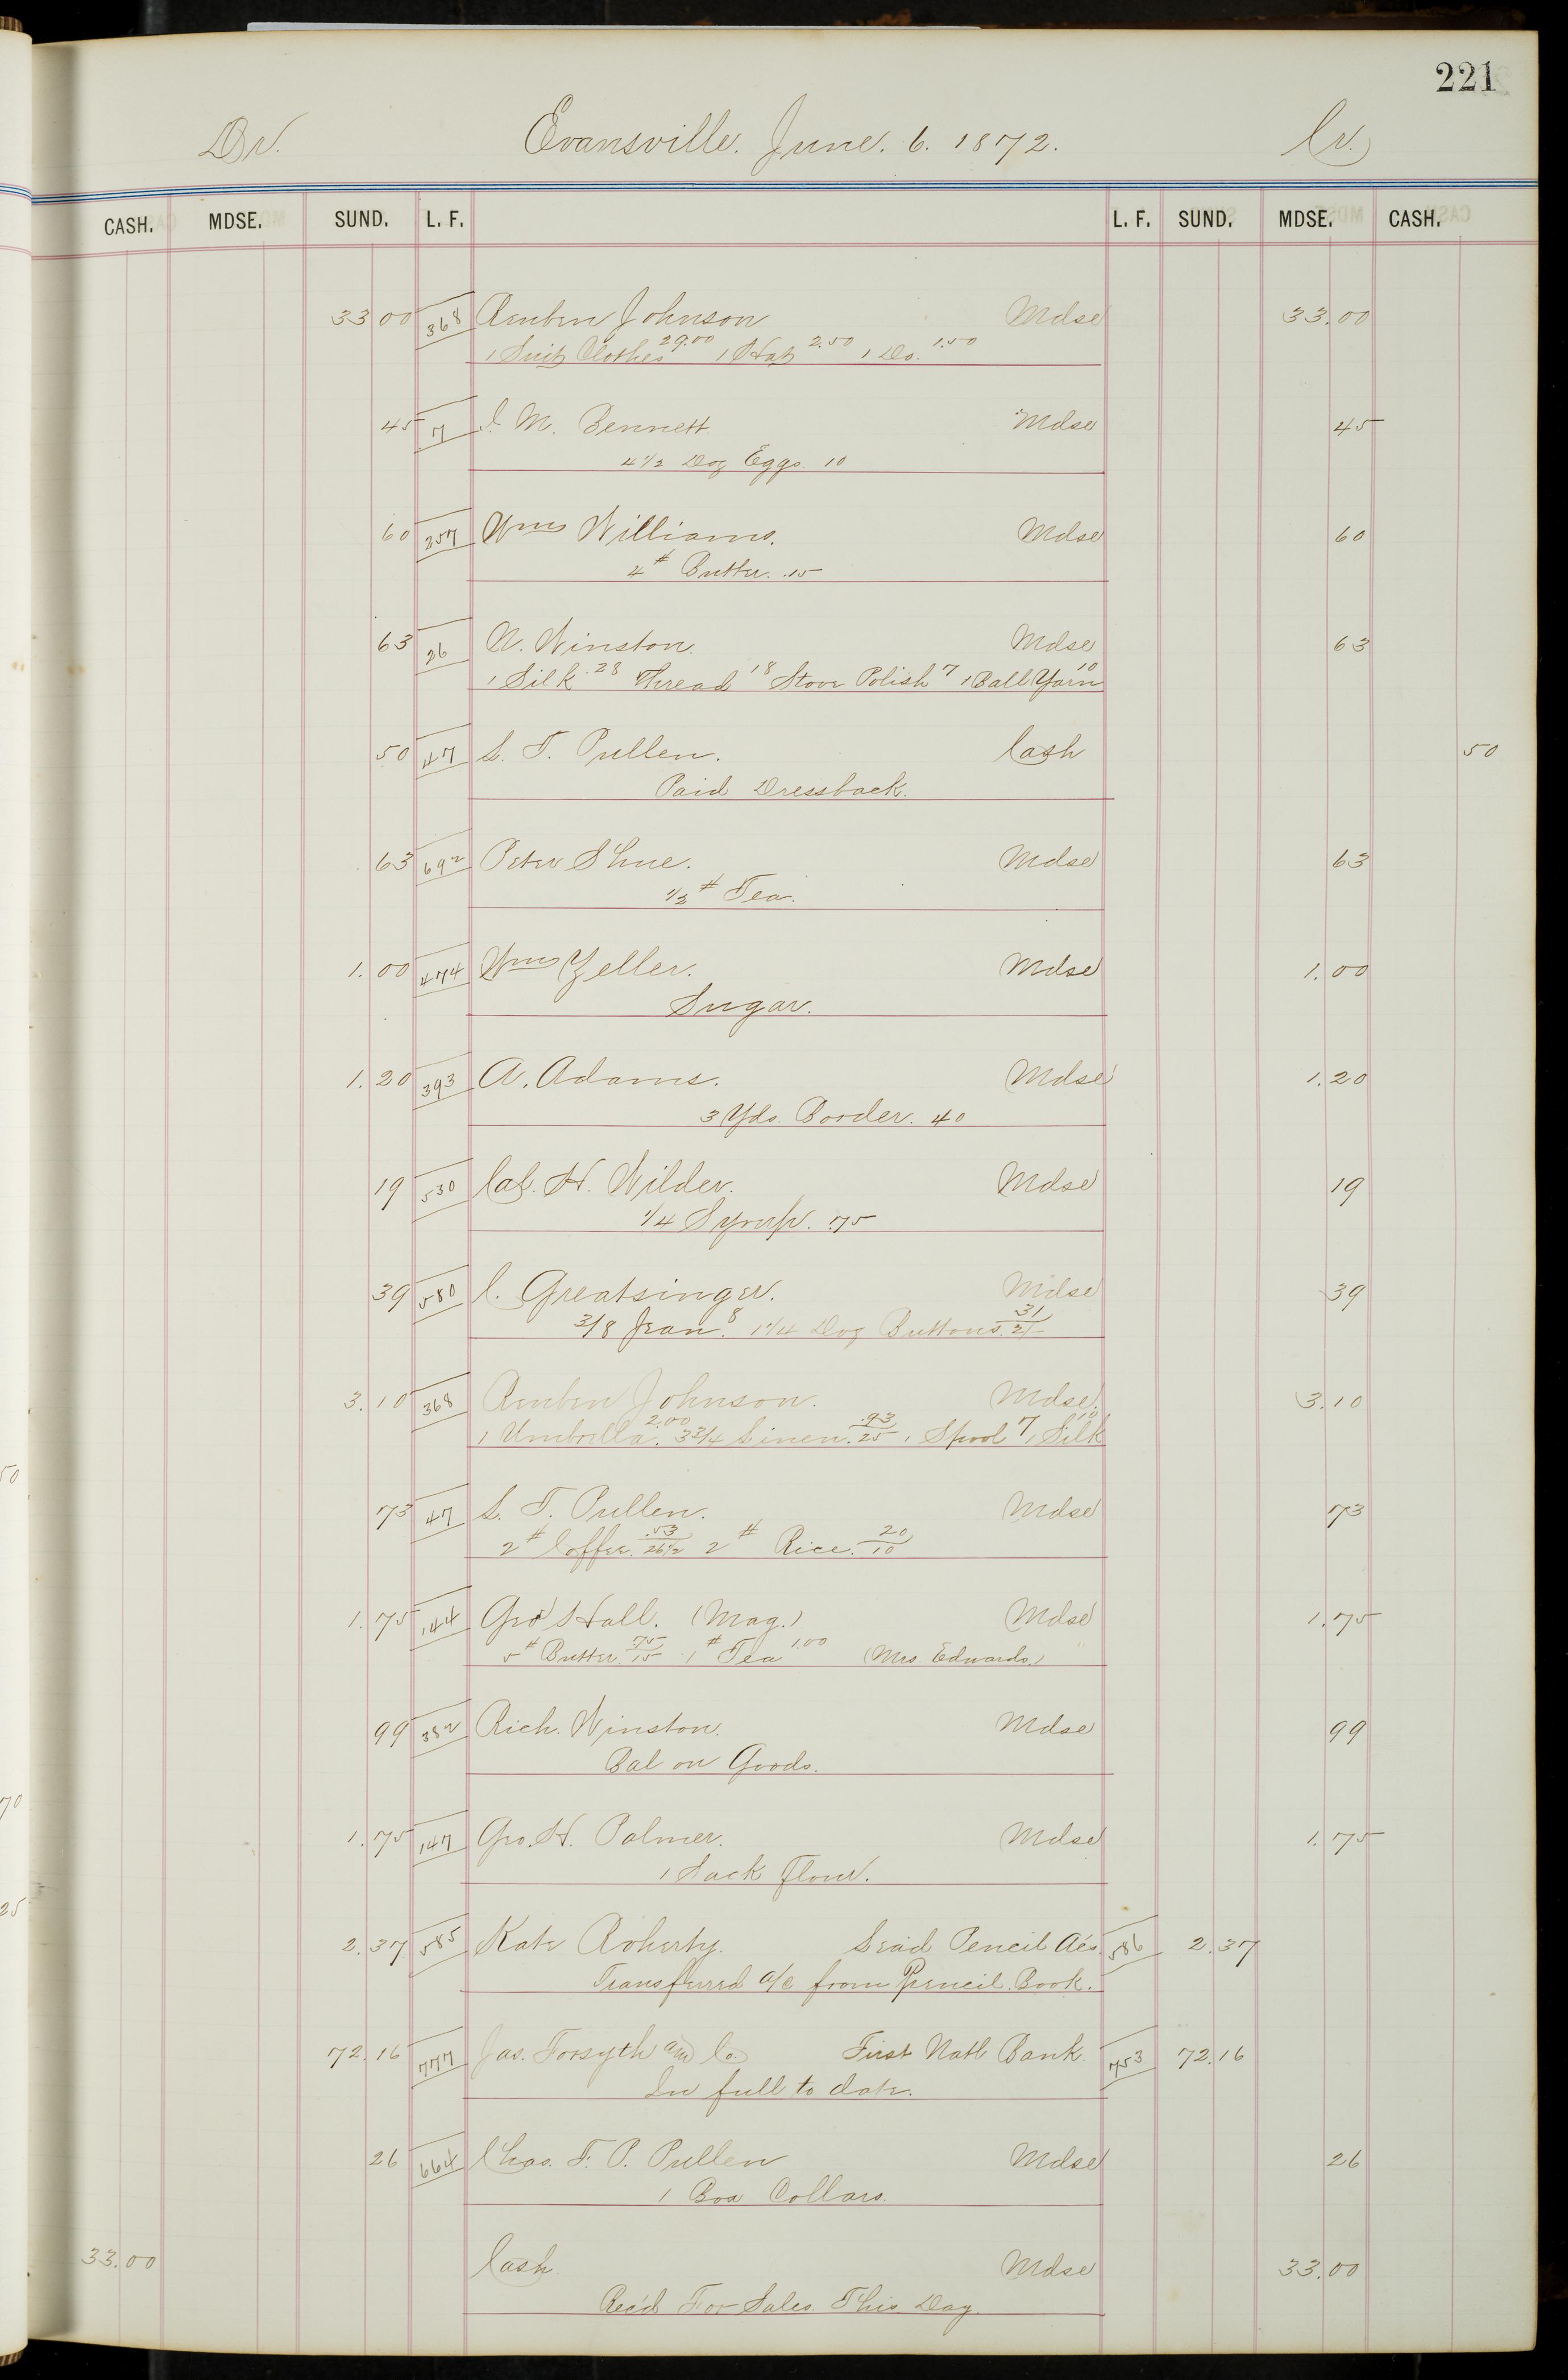 221
Dr. Evansville. June. 6. 1872. Cr.
CASH. MDSE. SUND. L. F. L. F. SUND. MDSE. CASH.
33 00 368 Reuben Johnson Mdse 33.00
1 Suit Clothes 29.00 1 Hat 2.50 1 Do. 1.50
45 7 I. M. Bennett Mdse 45
4 1/2 Doz Eggs. 10
60 257 Wm Williams. Mdse 60
4# Butter. .15
63 26 N. Winston. Mdse 63
1 Silk .28 Thread 18 Stove Polish 7 1 Ball Yarn 10
50 47 L. T. Pullen. Cash 50
Paid Dressback.
63 692 Peter Shue. Mdse 63
1/2# Tea.
1.00 474 Wm Zeller. Mdse 1.00
Sugar.
1.20 393 A. Adams. Mdse 1.20
3 Yds. Border. 40
19 530 Cal. H. Wilder. Mdse 19
1/4 Syrup. .75
39 580 C. Greatsinger. Mdse 39
3/8 Jean. 8 1 1/4 Doz Buttons. 31/25
3.10 368 Reuben Johnson. Mdse. 3.10
1 Umbrella. 2.00 3 3/4 Linen. .93/25 1 Spool 7 1 Silk 10
73 47 L. T. Pullen. Mdse 73
2# Coffee. .53/26 1/2 2# Rice. 20/10
1.75 144 Geo Hall. (Mag.) Mdse 1.75
5# Butter. 75/15 1# Tea 1.00 (Mrs. Edwards.)
99 382 Rich. Winston. Mdse 99
Bal on Goods.
1.75 147 Geo. H. Palmer. Mdse 1.75
1 Sack Flour.
2.37 585 Kate Roherty. Lead Pencil Ac's. 586 2.37
Transfured a/c from Pencil Book.
72.16 777 Jas. Forsyth and Co. First Natl Bank. 753 72.16
In full to date.
26 664 Chas. F. P. Pullen Mdse 26
1 Box Collars.
33.00 Cash Mdse 33.00
Rec'd For Sales This Day.
50
70
25